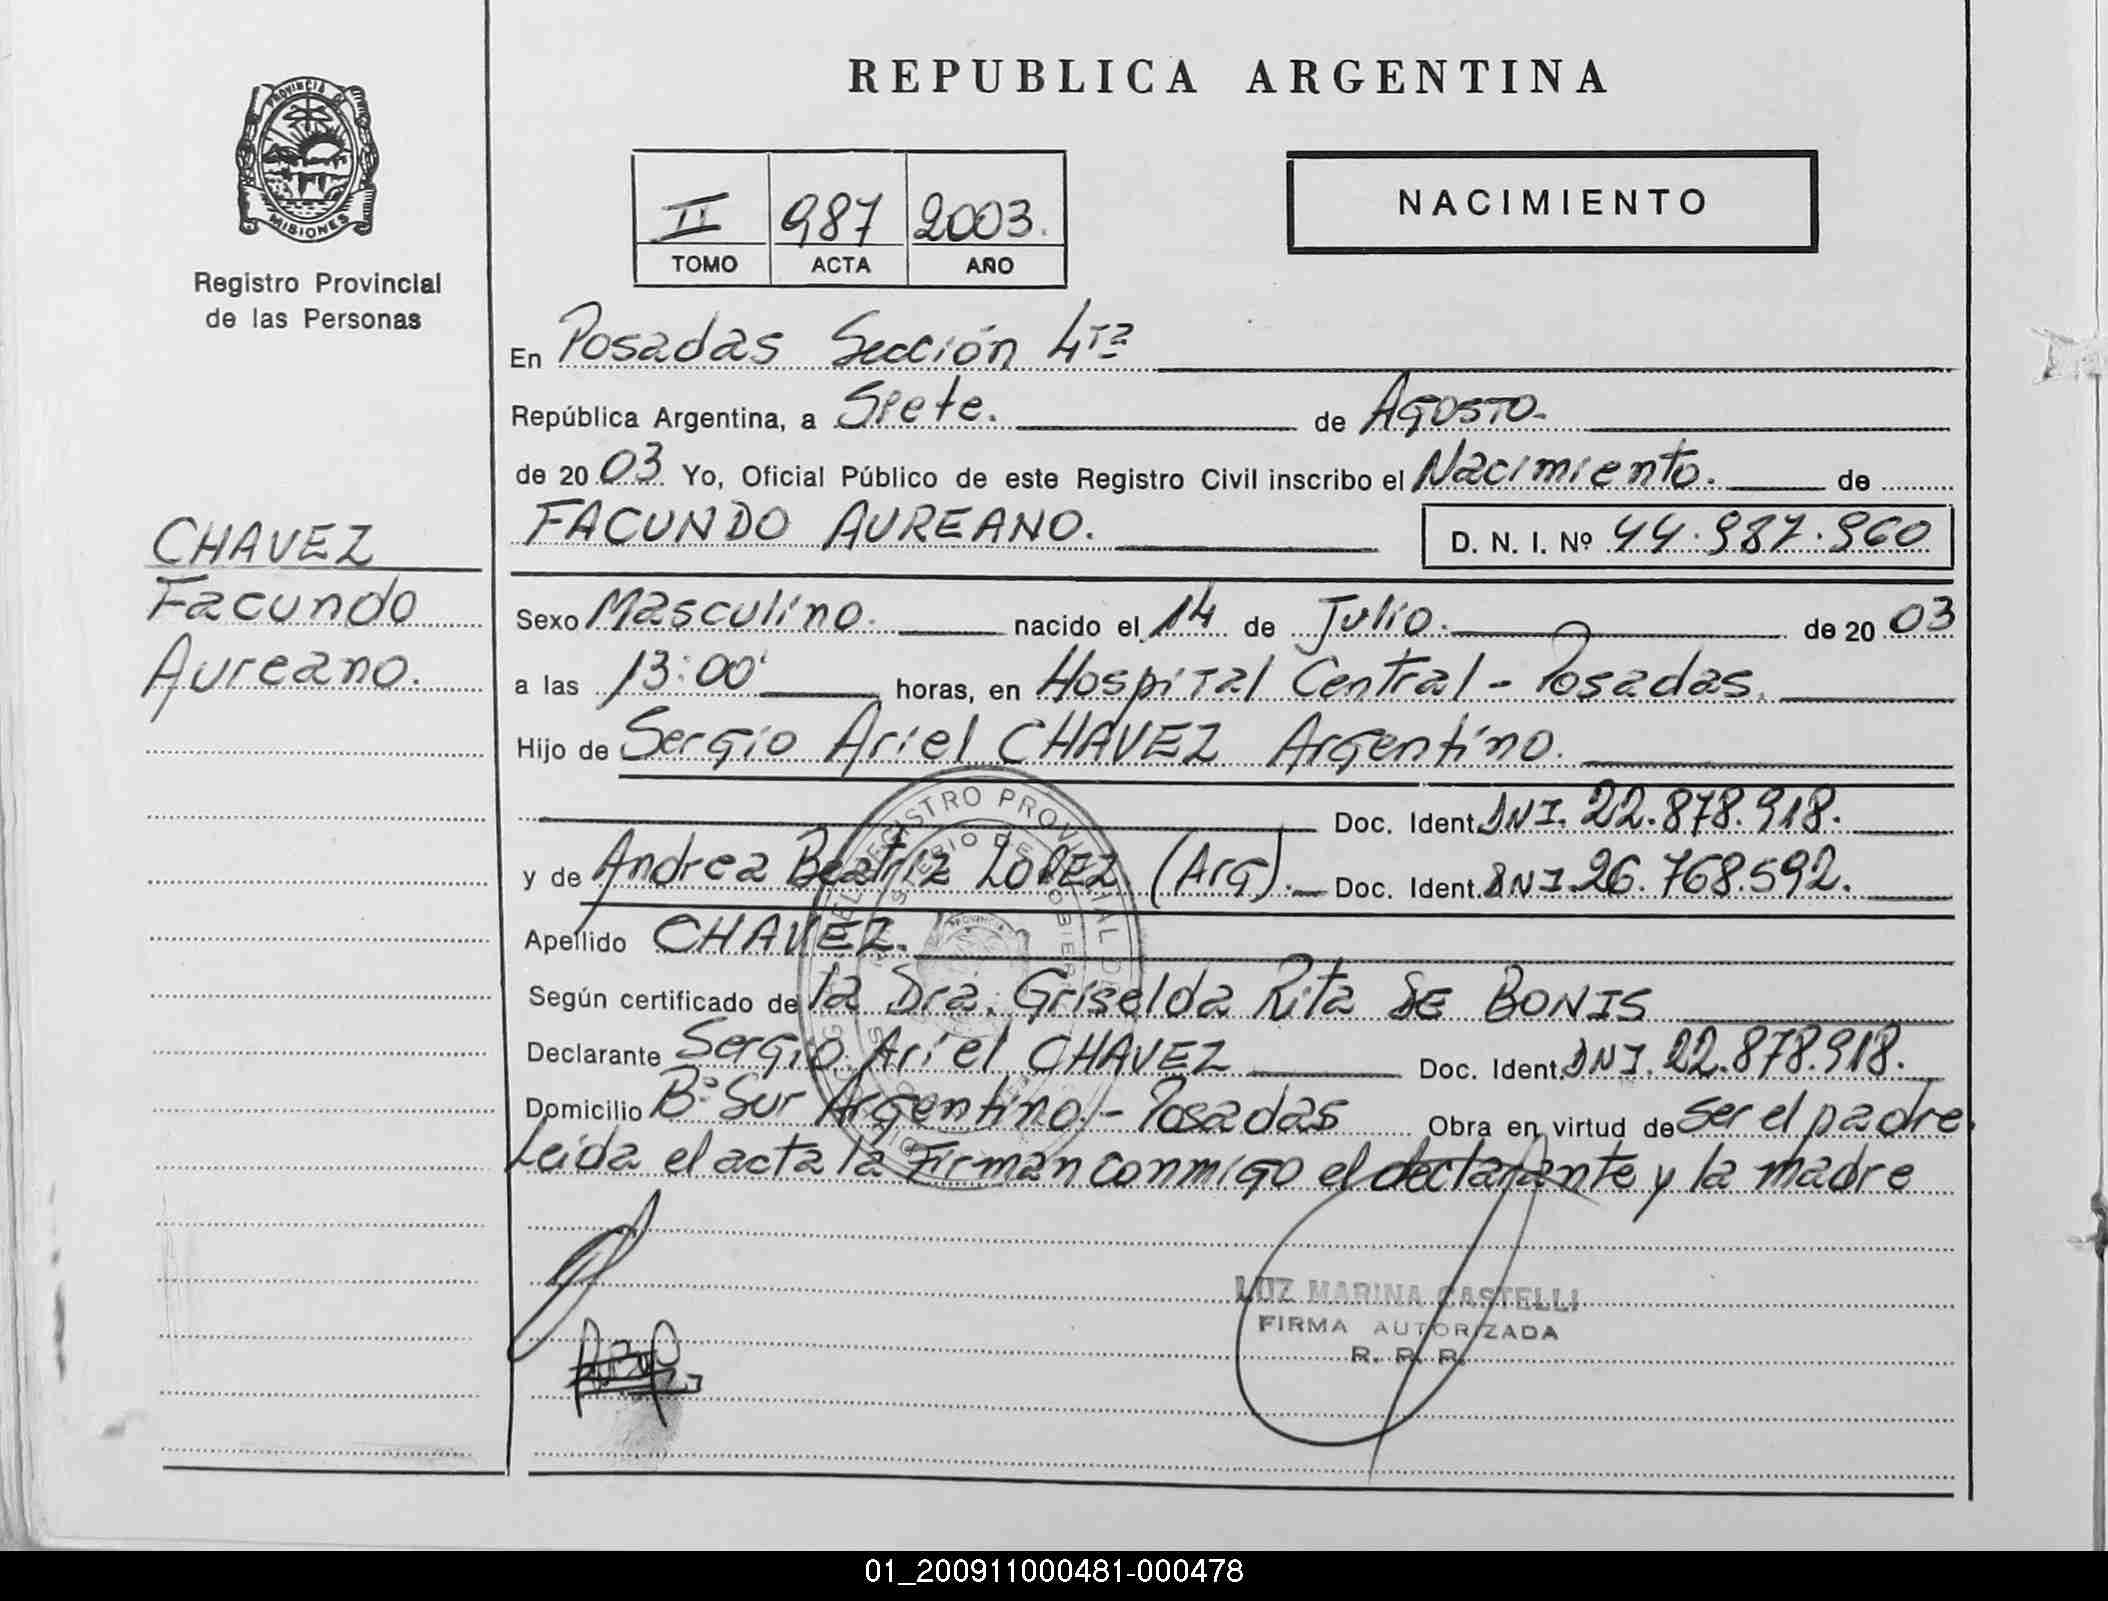 REPUBLICA ARGENTINA
PROVINCIA DE
MISIONES
Registro Provincial
de las Personas
II 987 2003.
TOMO ACTA AÑO
NACIMIENTO
En Posadas Sección 4ta
República Argentina, a Siete. de Agosto.
de 20 03 Yo, Oficial Público de este Registro Civil inscribo el Nacimiento. de
FACUNDO AUREANO. D. N. I. Nº 44.987.960
CHAVEZ
Facundo
Aureano.
Sexo Masculino. nacido el 14 de Julio. de 20 03
a las 13:00' horas, en Hospital Central - Posadas.
Hijo de Sergio Ariel CHAVEZ Argentino.
Doc. Ident. DNI. 22.878.918.
y de Andrea Beatriz LOPEZ (Arg). Doc. Ident. DNI. 26.768.592.
Apellido CHAVEZ.
Según certificado de la Dra. Griselda Rita DE BONIS
Declarante Sergio Ariel CHAVEZ Doc. Ident. DNI. 22.878.918.
Domicilio Bº Sur Argentino - Posadas Obra en virtud de ser el padre.
Leida el acta la Firman conmigo el declarante y la madre
REGISTRO PROVINCIAL DE
LUZ MARINA CASTELLI
FIRMA AUTORIZADA
R. P. P.
01_200911000481-000478